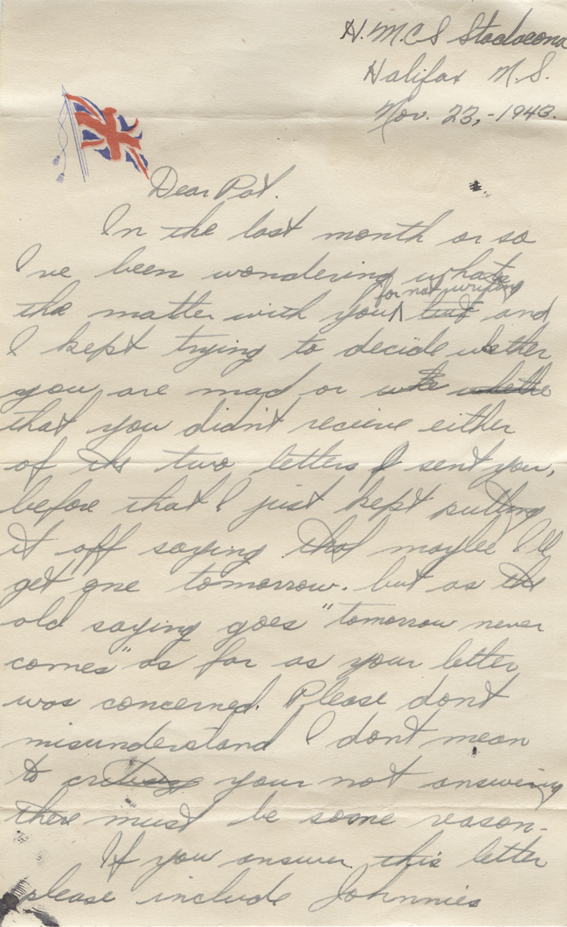 H.M.C.S Stadacona
Halifax N.S.
Nov. 23,-1943.
Dear Pat.
In the last month or so
I've been wondering whats
for not writing
the matter with you but and
I kept trying to decide wether
you are mad or
that you didn't recieve either
of the two letters I sent you,
before that I just kept putting
it off saying that maybe I'll
get one tomorrow. but as the
old saying goes "tomorrow never
comes" as far as your letter
was concerned. Please dont
misunderstand I dont mean
to your not answering
there must be some reason-
If you answer this letter
please include Johnnies